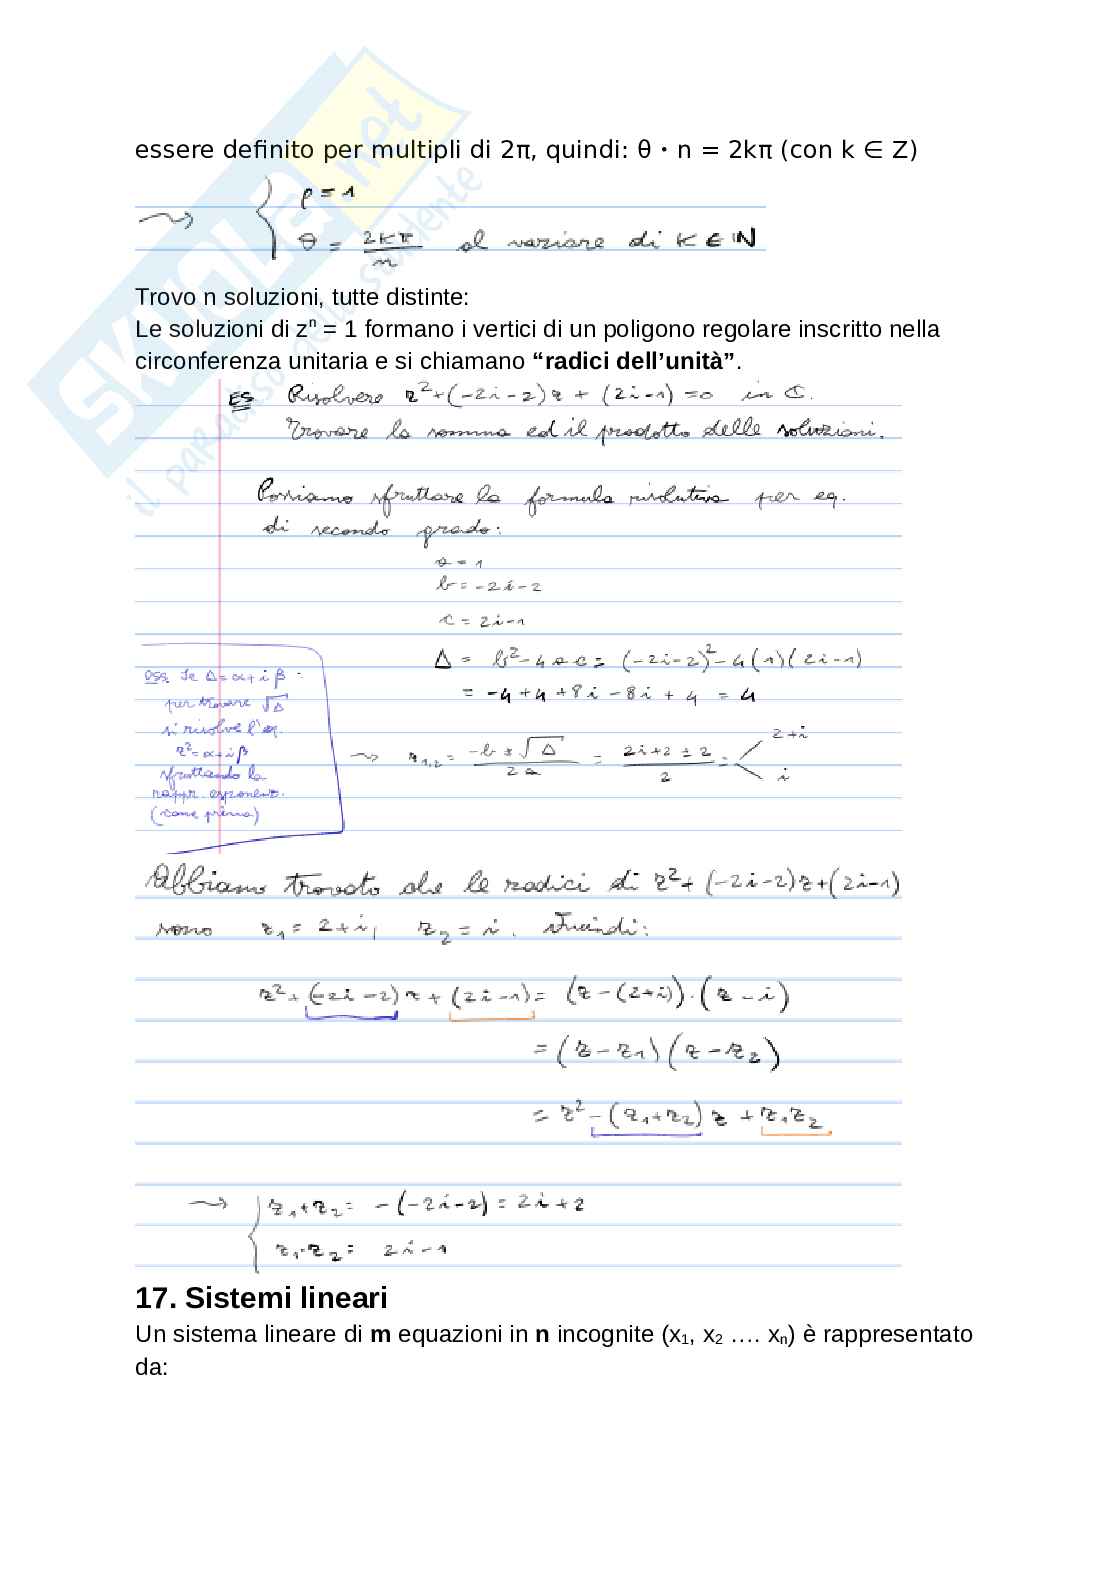 essere definito per multipli di 2π, quindi: θ · n = 2kπ (con k ∈ Z)
ρ = 1
θ = 2kπ/n al variare di K ∈ ℕ
Trovo n soluzioni, tutte distinte:
Le soluzioni di zⁿ = 1 formano i vertici di un poligono regolare inscritto nella
circonferenza unitaria e si chiamano “radici dell’unità”.
ES Risolvere z²+(-2i-2)z + (2i-1) = 0 in ℂ.
Trovare la somma ed il prodotto delle soluzioni.
Possiamo sfruttare la formula risolutiva per eq.
di secondo grado:
a = 1
b = -2i-2
c = 2i-1
Δ = b²-4ac = (-2i-2)²-4(1)(2i-1)
= -4+4+8i-8i+4 = 4
OSS. Se Δ=α+iβ
per trovare √Δ
si risolve l'eq.
z²=α+iβ
sfruttando la
rappr. esponenz.
(come prima)
z₁,₂ = (-b ± √Δ)/2a = (2i+2 ± 2)/2 = 2+i
i
Abbiamo trovato che le radici di z²+(-2i-2)z+(2i-1)
sono z₁ = 2+i, z₂ = i. Quindi:
z²+(-2i-2)z+(2i-1) = (z-(2+i))·(z-i)
= (z-z₁)(z-z₂)
= z²-(z₁+z₂)z + z₁z₂
z₁+z₂ = -(-2i-2) = 2i+2
z₁·z₂ = 2i-1
17. Sistemi lineari
Un sistema lineare di m equazioni in n incognite (x₁, x₂ …. xₙ) è rappresentato
da:
SKUOLA.net
il paradiso dello studente